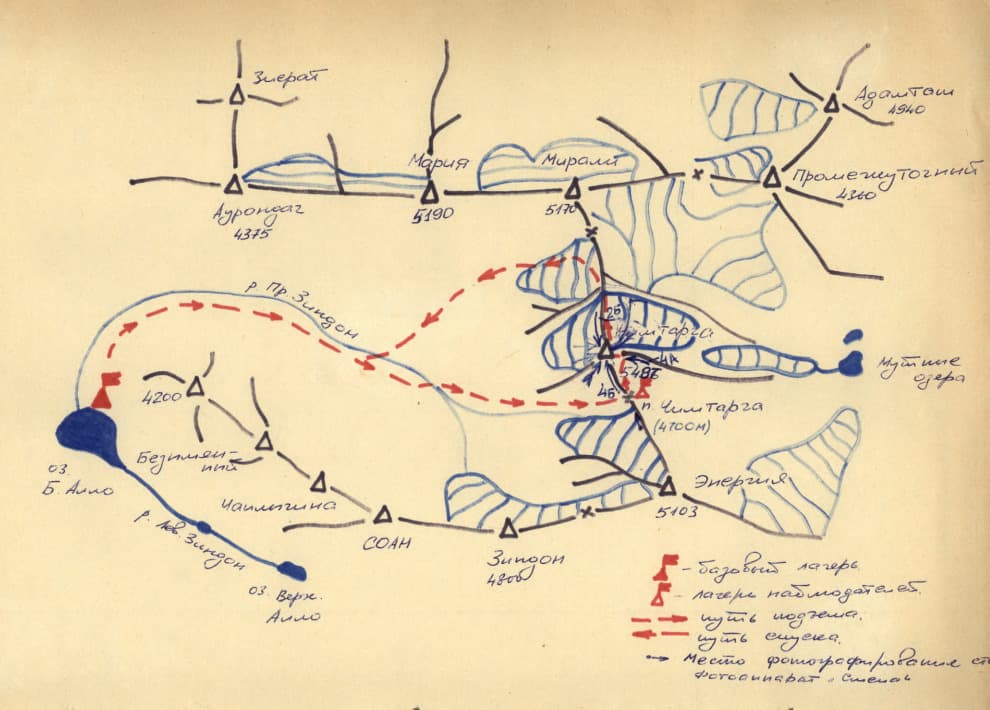 Зиерат
Адамташ
4940
Мария
5190
Мирали
5170
Промежуточный
4360
Аурондаг
4375
р. Пр. Зиндон
2Б
Чимтарга
5487
4А
4Б
Мутные
озера
п. Чимтарга
(4700м)
4200
Безимян-
ний
Чаплигина
СОАН
Зиндон
4800
Энергия
5103
оз.
Б. Алло
р. Лев. Зиндон
оз. Верх.
Алло
- базовый лагерь
- лагерь наблюдателей.
путь подъема.
путь спуска.
Место фотографирования
Фотоаппарат "Смена"